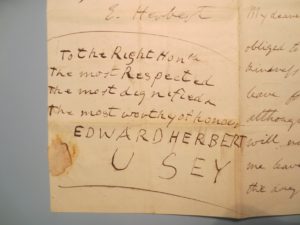 E. Herbert
To the Right Honble
the most Respected
the most dignified &
the most worthy of honour
EDWARD HERBERT
U SEY
My dear
obliged to
kindness
leave f
although
will no
me leave
the any